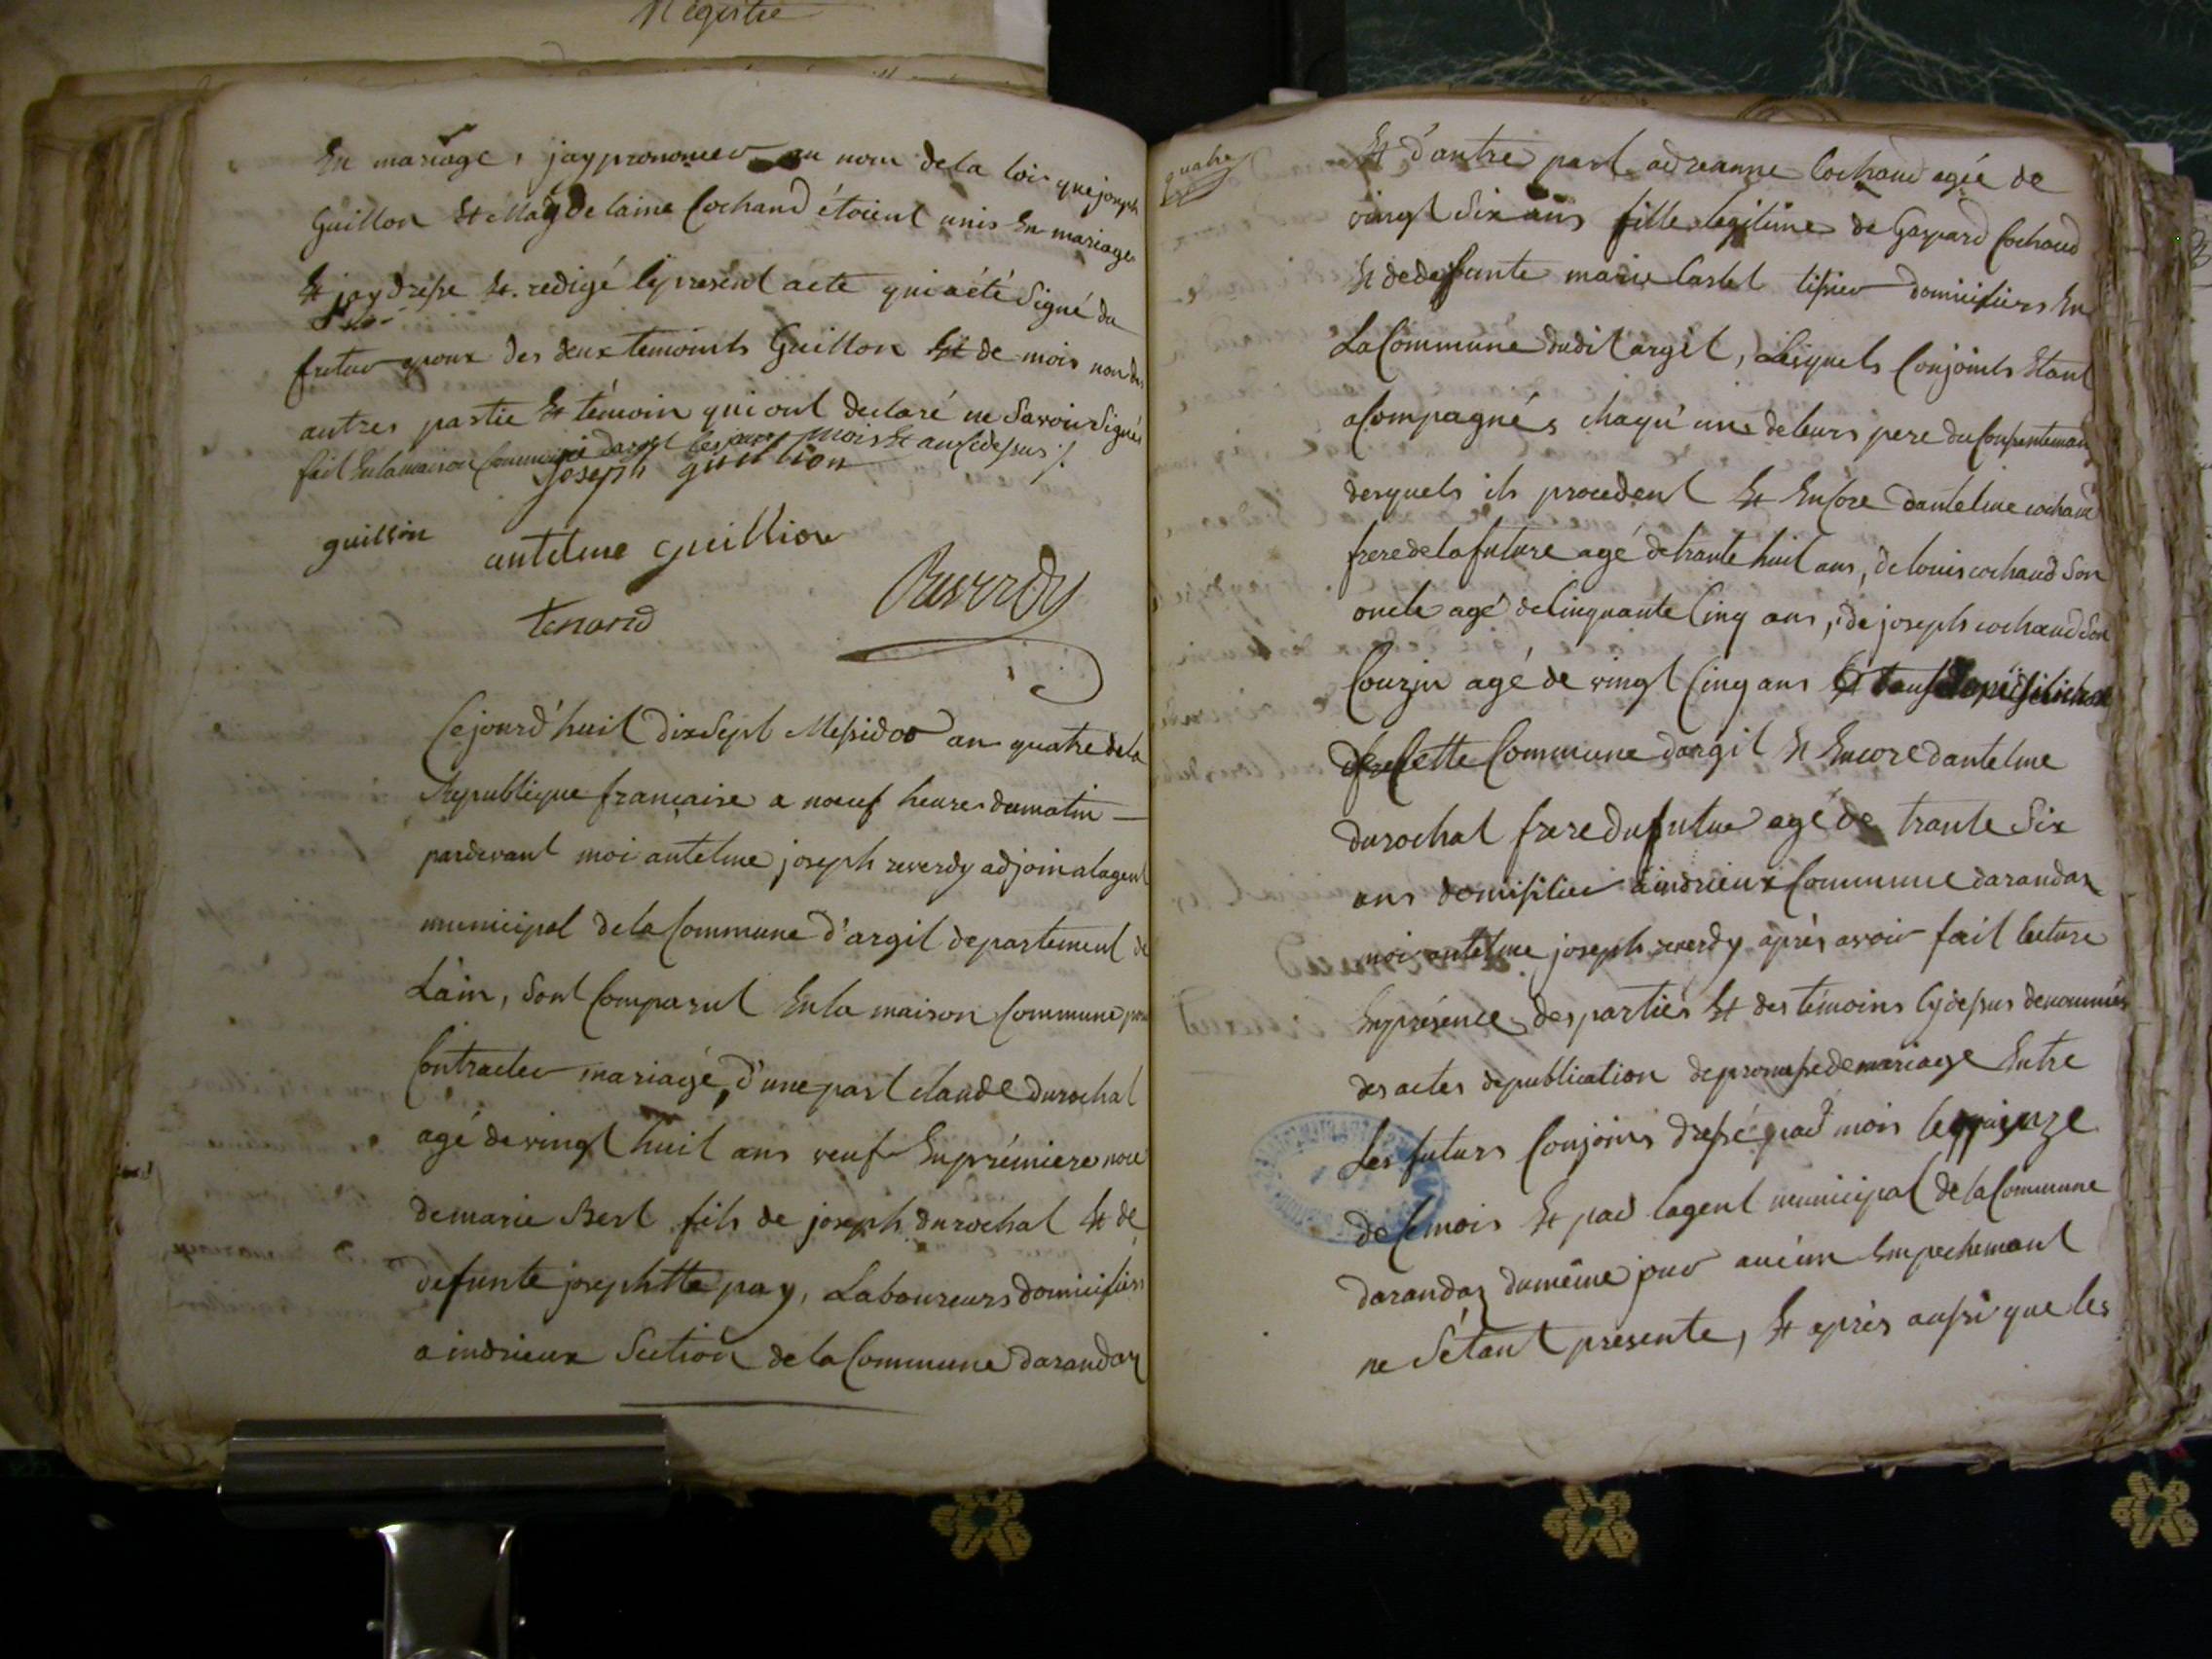 Registre
En mariage, jay prononcer au nom dela loi que joseph
Guillon Et Magdelaine Cochand étoient unis En mariage
Et jay drese Et redigé le present acte qui a été Signé du
futur epoux des deux temoints Guillon Et de mois non des
autres partie Et témoin qui ont declaré ne Savoir Signés
fait En la maison Commune dargit les jour mois Et an Cidesus
joseph guillion
guillon
antelme guillion
tenand
Reverdy
Cejourd'huit dix Sept Mesidor an quatre dela
Republique française a noeuf heures dumatin
pardevant moi antelme joseph reverdy adjoin alagent
municipal dela Commune d'argit departement de
Lain, Sont Comparut En la maison Commune pour
Contracter mariage, d'une part claude durochat
agé de vingt huit ans veuf En prémiere noce
demarie Bert fils de joseph durochat Et de
defunte josephtte pay, Laboureurs domicifiers
a indrieux Section dela Commune darandas
quatre
Et d'autre part adreanne Cochand agée de
vingt Six ans fille legitime de Gaspard Cochaud
Et dedeffunte marie Castel tisier domicifiers En
La Commune dudit argit, Lesquels Conjoints Etant
aCompagnés chaqu'une deleurs pere du Consentemant
desquels ils procedent Et EnCore dantelme cochand
frere dela future agé detrante huit ans, de louis cochaud Son
oncle agé deCinquante Cinq ans, de joseph cochaud Son
Couzin agé de vingt Cinq ans Et tous
de Cette Commune dargit Et Encore dantelme
durochat frere du futur agé de trante Six
ans domifilier a indrieux Commune darandas
moi antelme joseph reverdy après avoir fait lecture
En présence des parties Et des témoins Cy desus denommés
des actes de publication de promese de mariage Entre
Les futurs Conjoins dresé par mois le quinze
de Ce mois Et par lagent municipal dela Commune
darandas dumême jour aucun Empechemant
ne Sétant presente, Et après ausi que les